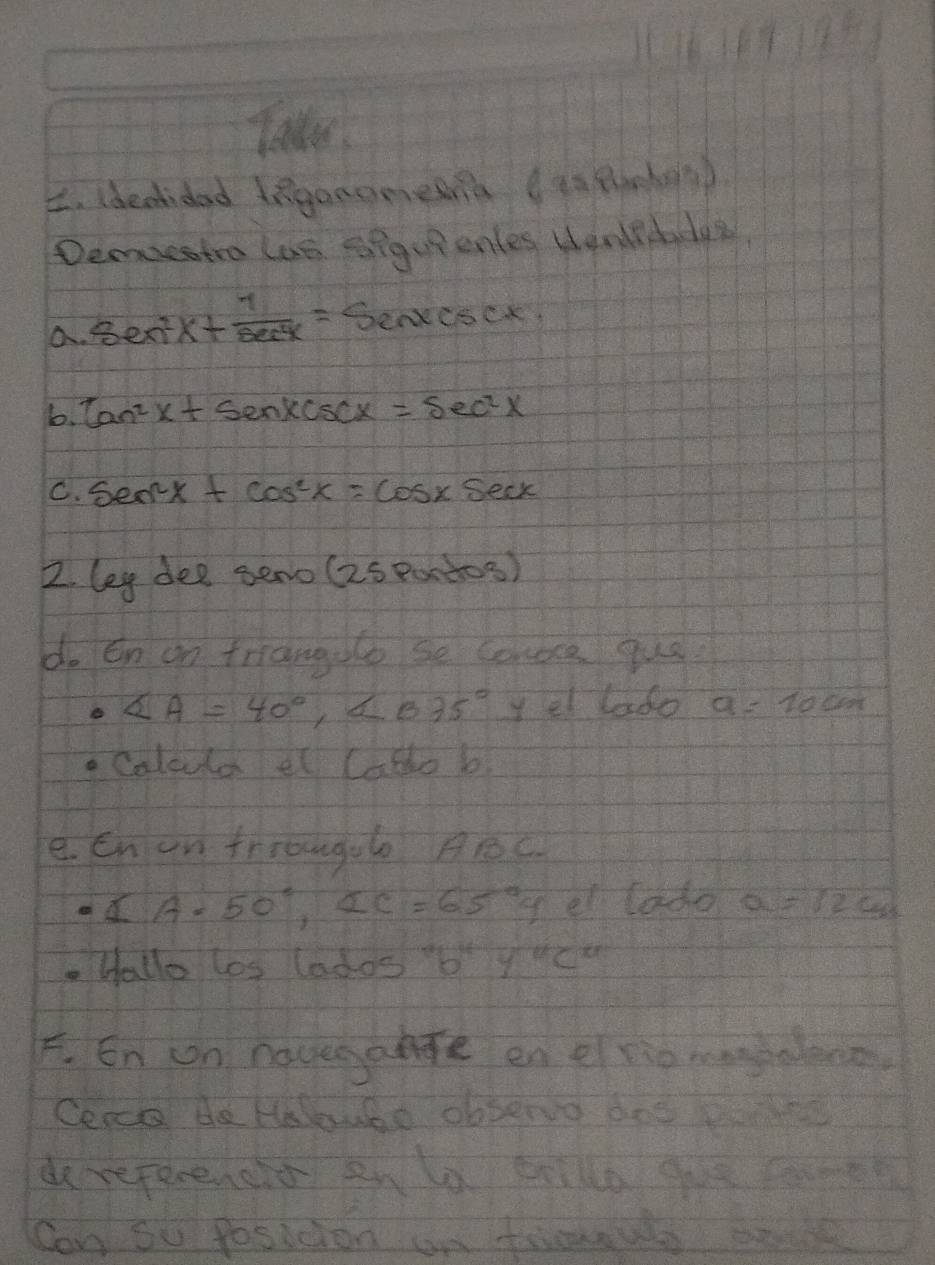 Taller.
1. Identidad trigonometria (25 Puntos)
Demuestra las siguientes identidades.
a. Sen²x + 1/sec²x = Senxcscx.
b. Tan²x + senxcscx = sec²x
c. Sen²x + cos²x = cosx secx
2. ley del seno (25 Puntos)
d. En un triangulo se conoce que:
• ∡A = 40°, ∡B 75° y el lado a = 10cm
• Calcula el lado b.
e. En un triangulo ABC.
• ∡A = 50°, ∡C = 65° y el lado a = 12cm
• Halla los lados "b" y "c"
F. En un navegante en el rio magdalena.
Cerca de observa dos
de referencia en la orilla que
Con su posición un triangulo